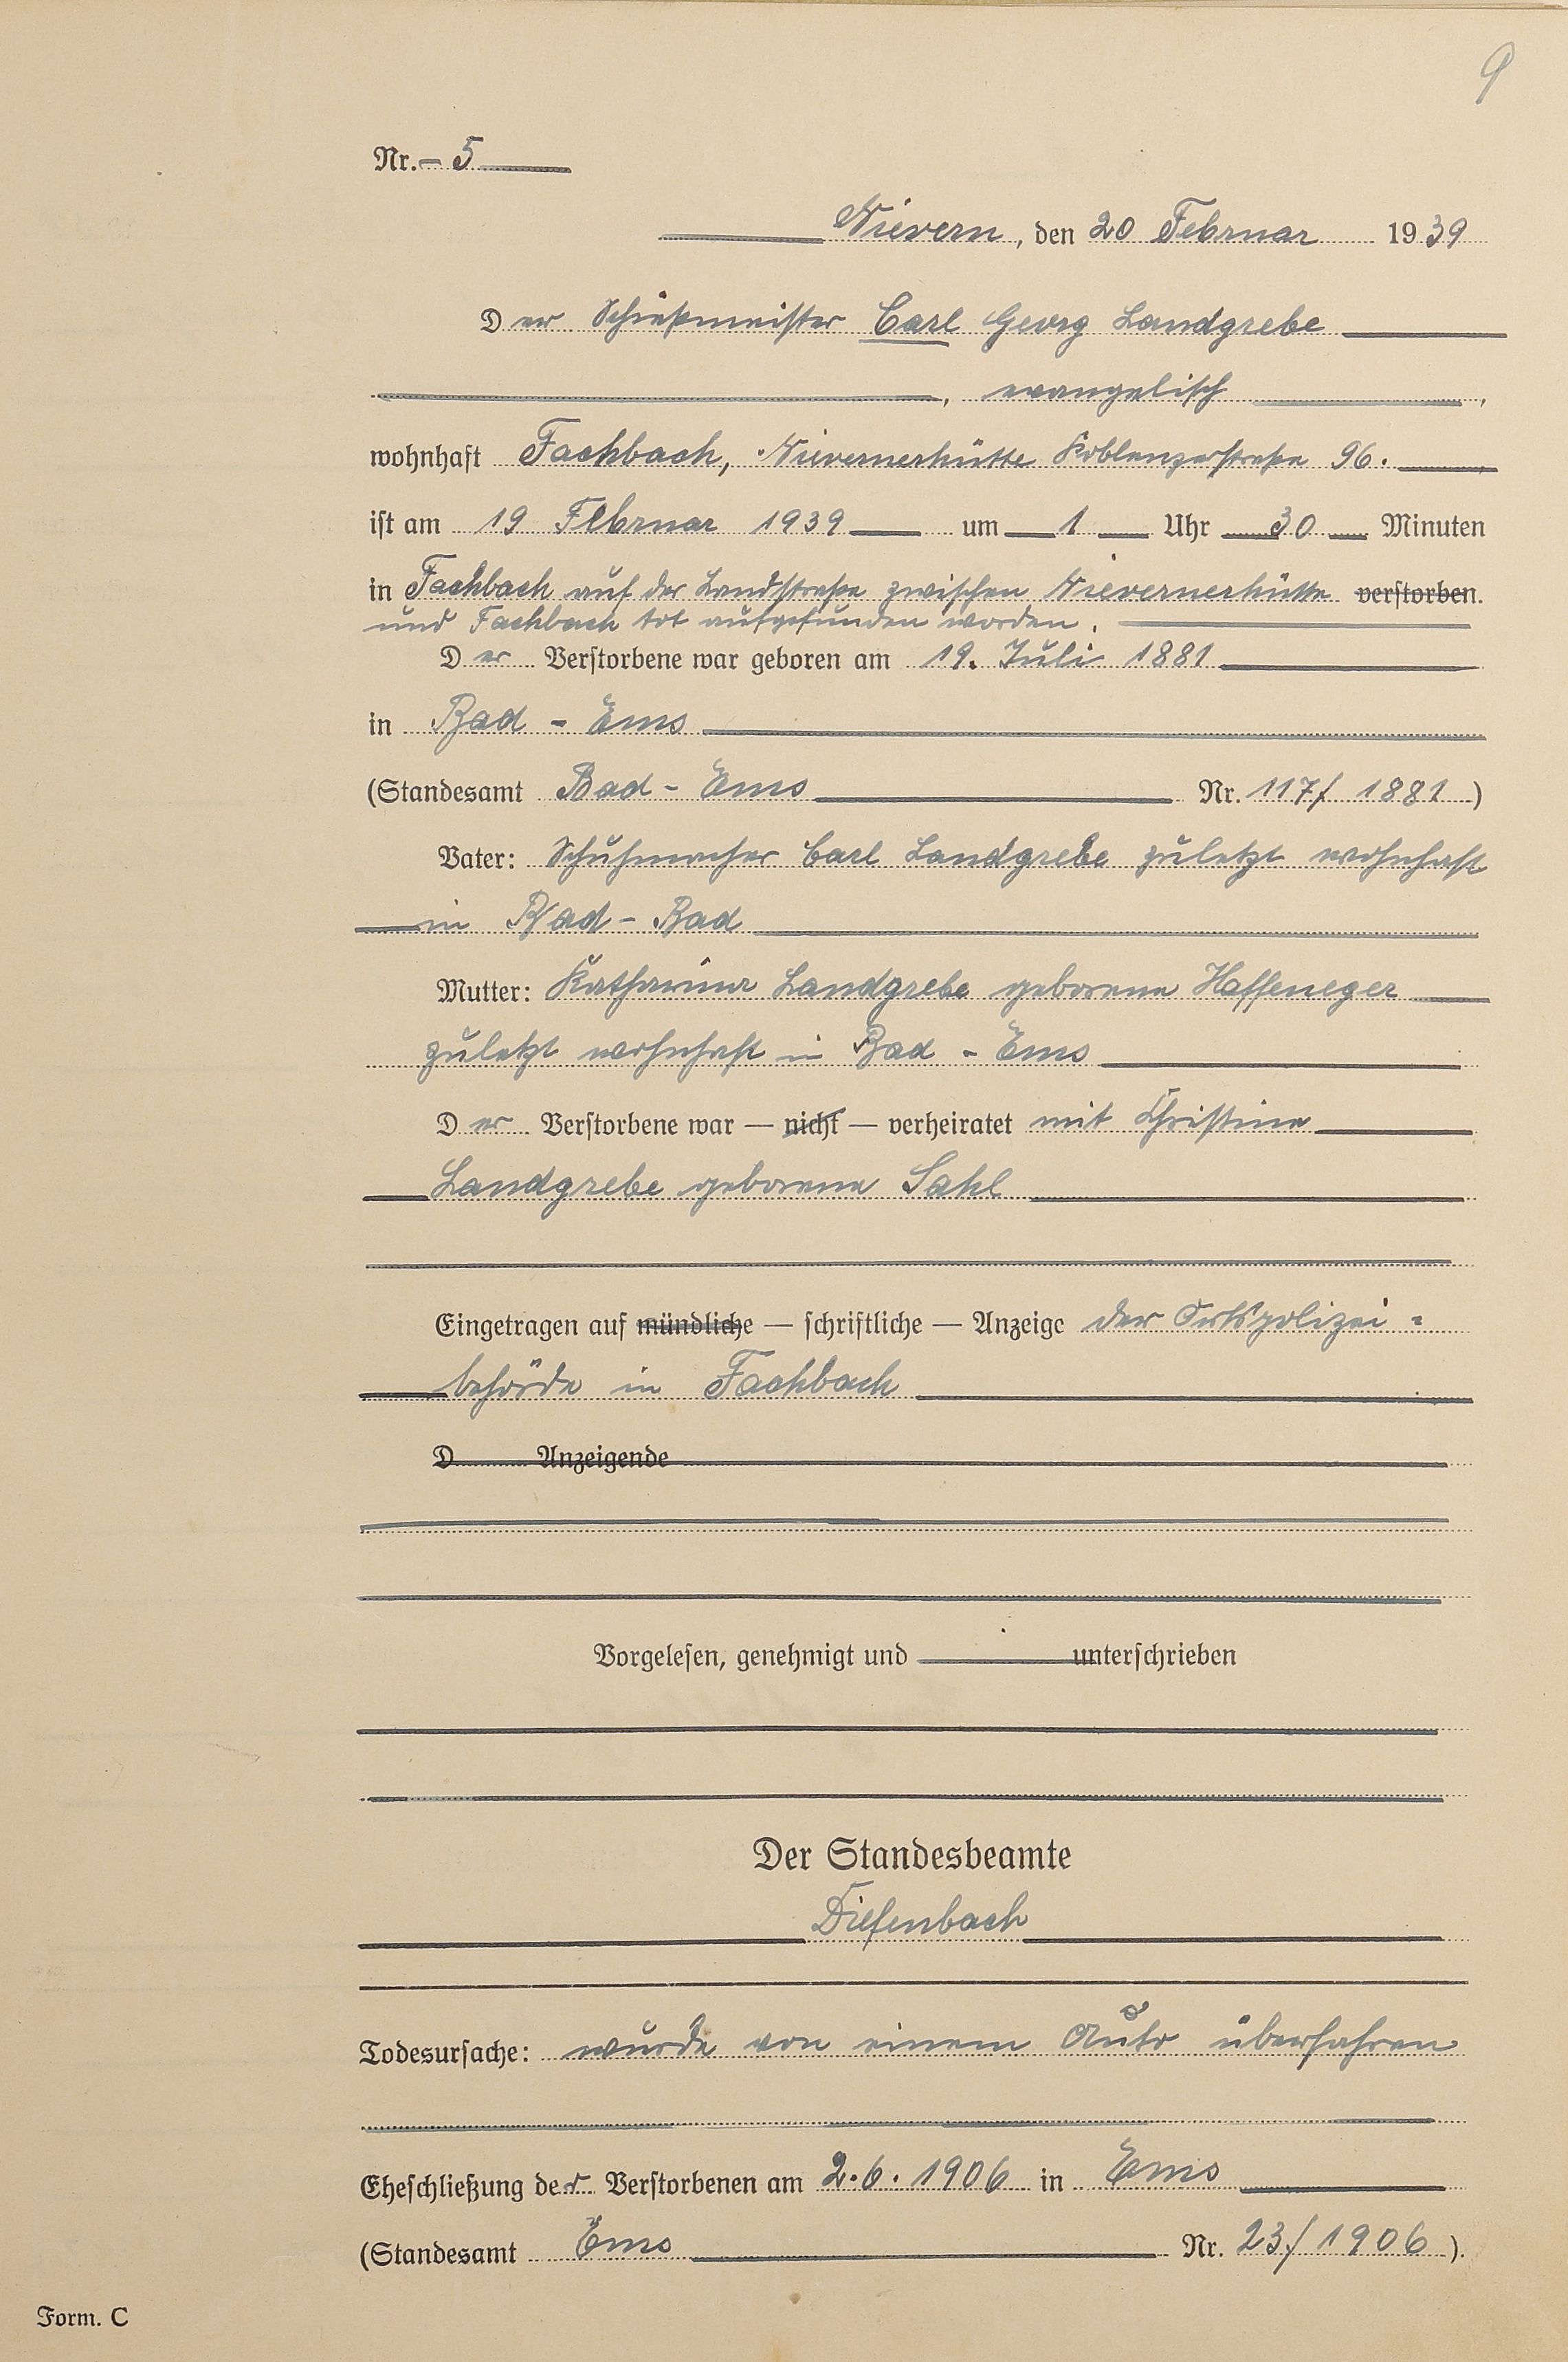 9
Nr. 5
Nievern, den 20 Februar 1939
Der Schießmeister Carl Georg Landgrebe
, evangelisch ,
wohnhaft Fachbach, Nievernerhütte Koblenzerstraße 96.
ist am 19 Februar 1939 um 1 Uhr 30 Minuten
in Fachbach auf der Landstraße zwischen Nievernerhütte verstorben.
und Fachbach tot aufgefunden worden.
Der Verstorbene war geboren am 19. Juli 1881
in Bad - Ems
(Standesamt Bad - Ems Nr. 117/ 1881)
Vater: Schuhmacher Carl Landgrebe zuletzt wohnhaft
in Bad - Bad
Mutter: Katharina Landgrebe geborene Haffeneger
zuletzt wohnhaft in Bad - Ems
Der Verstorbene war — nicht — verheiratet mit Christine
Landgrebe geborene Sahl
Eingetragen auf mündliche — schriftliche — Anzeige der Ortspolizei =
behörde in Fachbach
D Anzeigende
Vorgelesen, genehmigt und unterschrieben
Der Standesbeamte
Diefenbach
Todesursache: wurde von einem Auto überfahren
Eheschließung der Verstorbenen am 2.6.1906 in Ems
(Standesamt Ems Nr. 23/ 1906).
Form. C